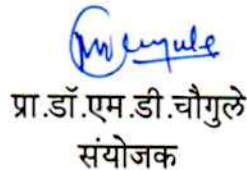 प्रा.डॉ.एम.डी.चौगुले
संयोजक